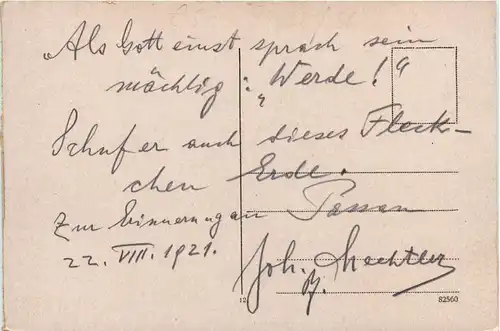 „Als Gott einst sprach sein
mächtig: „Werde!“
Schuf er auch dieses Fleck-
chen Erde.
Zur Erinnerung an Passau
22. VIII. 1921.
Joh.
12 82560